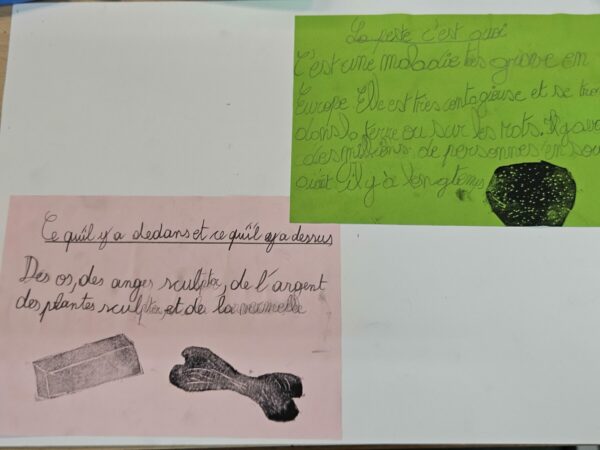 La peste c'est quoi
C'est une maladie très grave en
Europe Elle est très contagieuse et se trou
dans la terre ou sur les rats. Il y avai
des millions de personnes en
avait il y à longtemps
Ce qu'il y a dedans et ce qu'il y a dessus
Des os, des anges sculptés, de l'argent
des plantes sculptées et de la